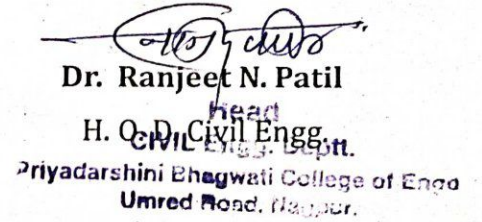 Dr. Ranjeet N. Patil
Head
H. O. D. Civil Engg.
CIVIL Engg. Deptt.
Priyadarshini Bhagwati College of Engg
Umred Road, Nagpur.